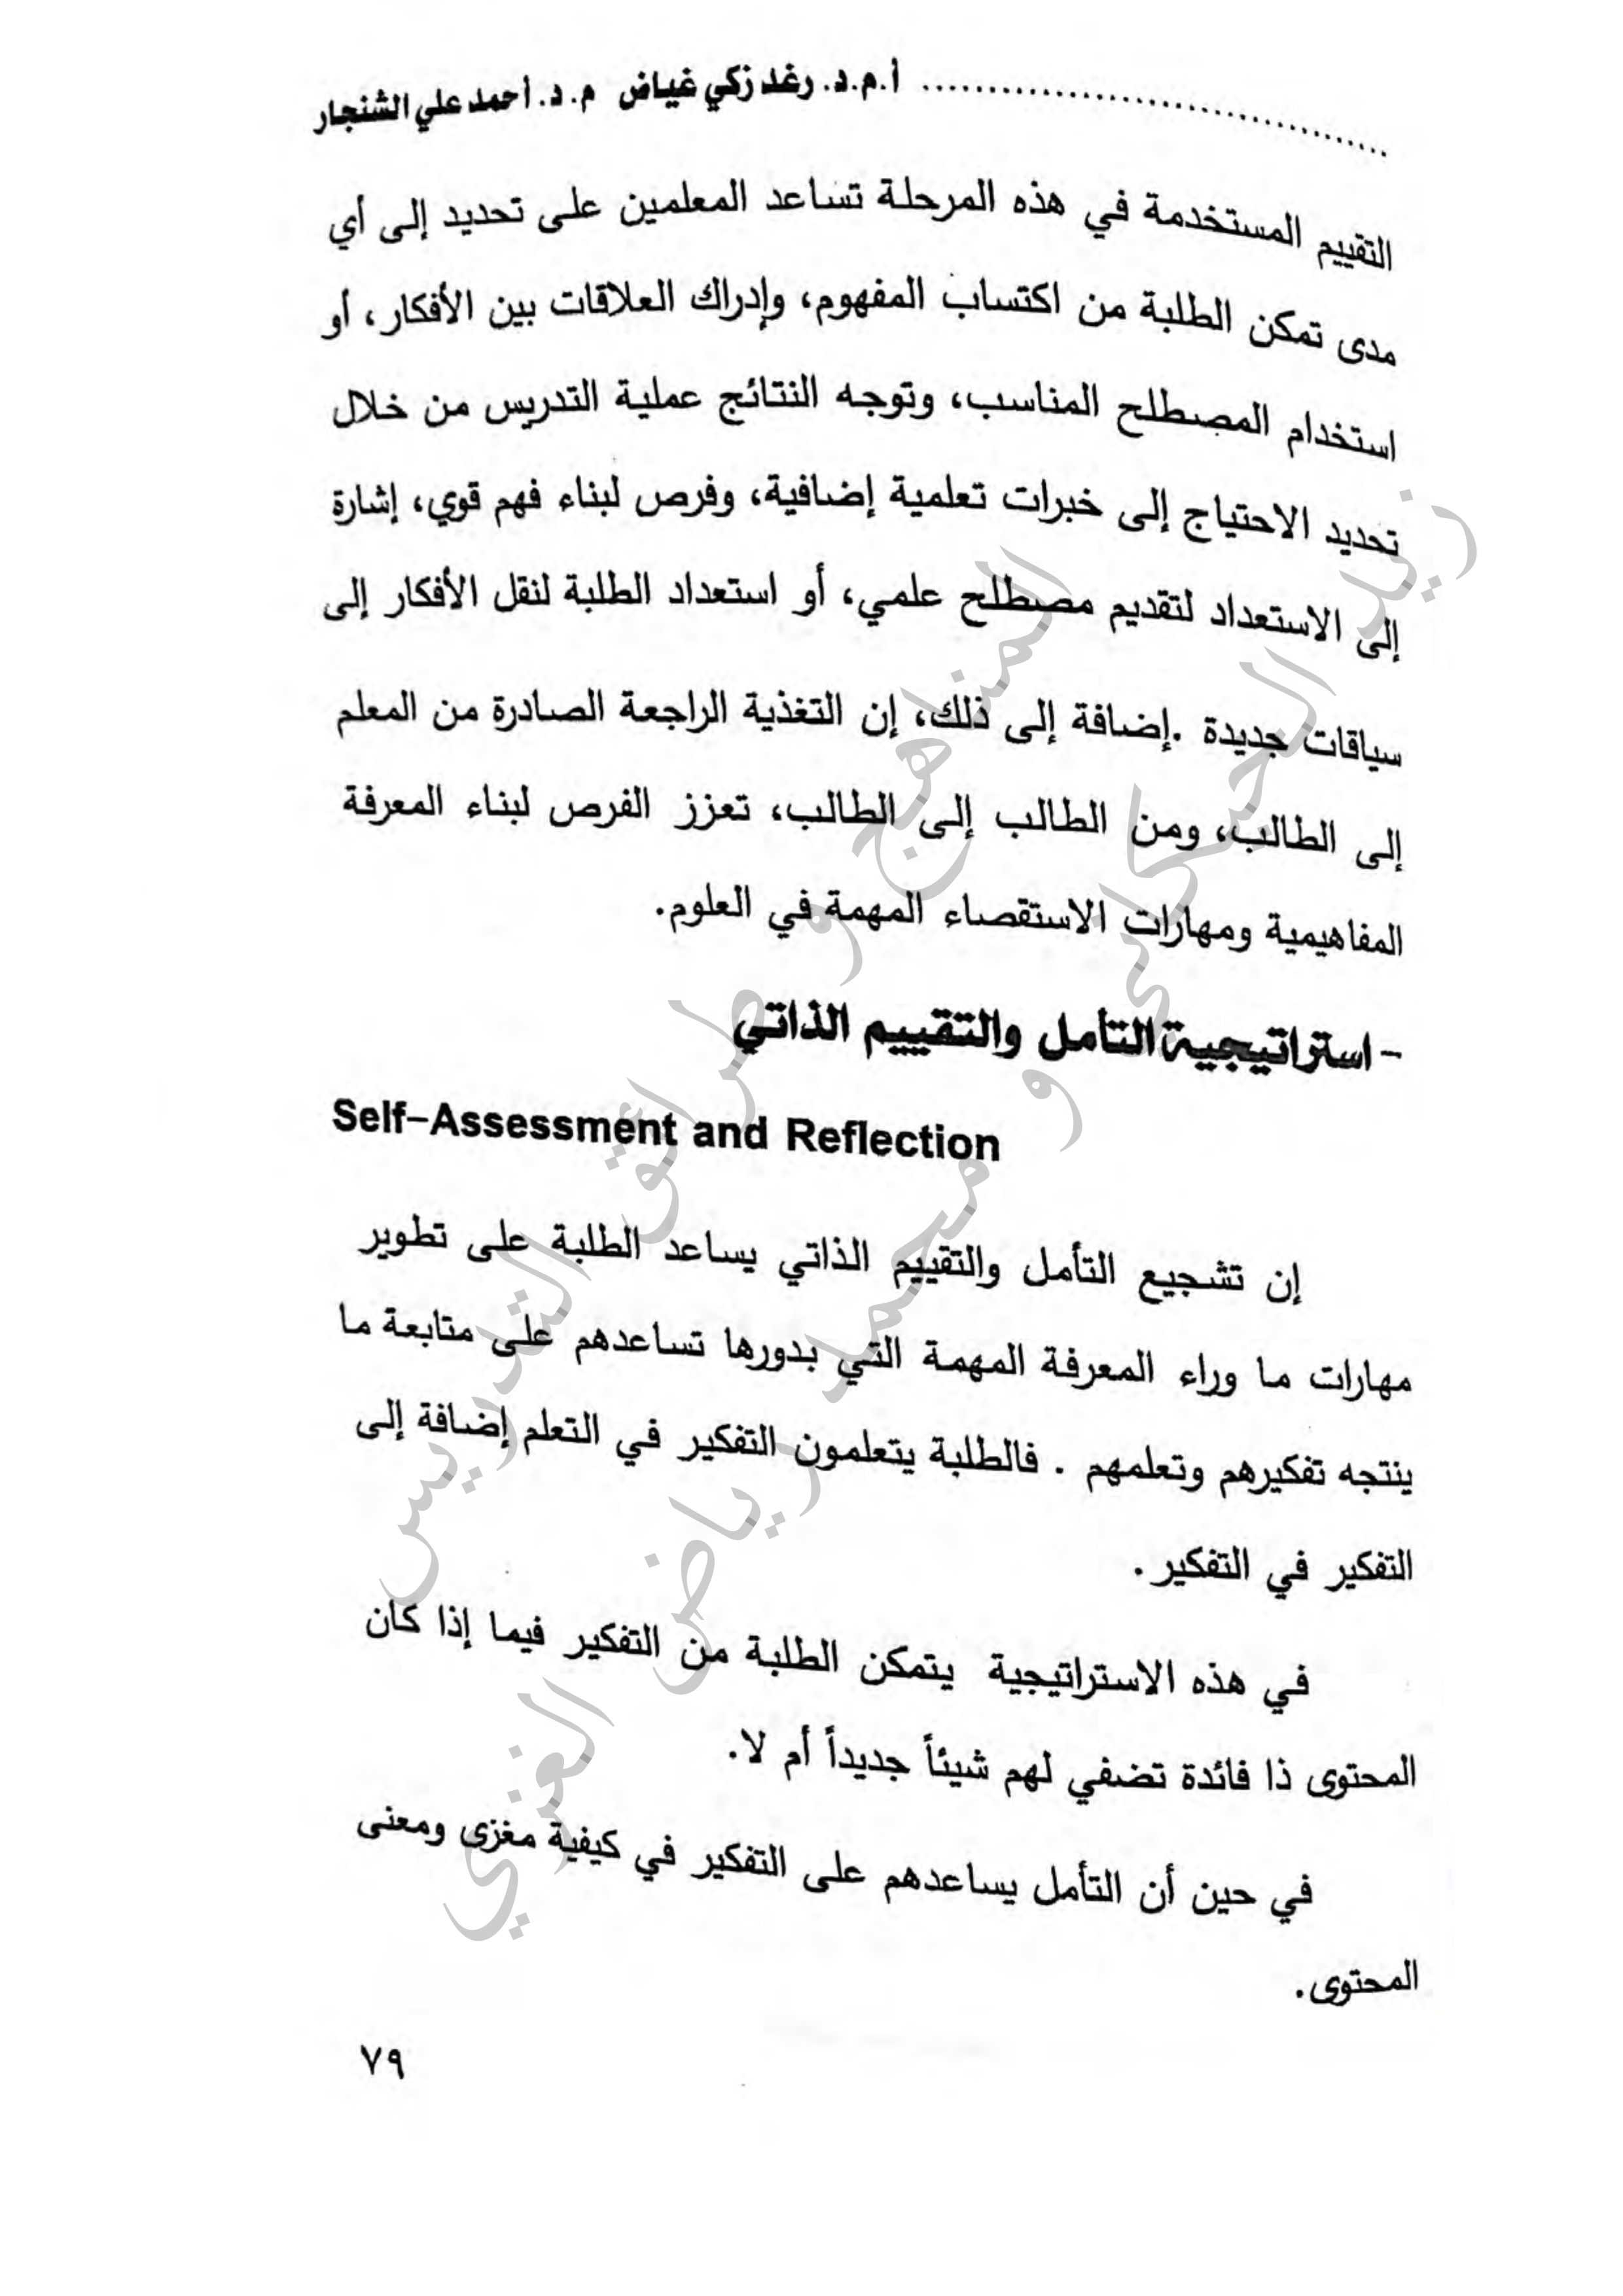 أ.م.د. رغد زكي غياض م. د. أحمد علي الشنجار
التقييم المستخدمة في هذه المرحلة تساعد المعلمين على تحديد إلى أي
مدى تمكن الطلبة من اكتساب المفهوم، وإدراك العلاقات بين الأفكار، أو
استخدام المصطلح المناسب، وتوجه النتائج عملية التدريس من خلال
تحديد الاحتياج إلى خبرات تعلمية إضافية، وفرص لبناء فهم قوي، إشارة
إلى الاستعداد لتقديم مصطلح علمي، أو استعداد الطلبة لنقل الأفكار إلى
سياقات جديدة .إضافة إلى ذلك، إن التغذية الراجعة الصادرة من المعلم
إلى الطالب، ومن الطالب إلى الطالب، تعزز الفرص لبناء المعرفة
المفاهيمية ومهارات الاستقصاء المهمة في العلوم.
- استراتيجية التأمل والتقييم الذاتي
Self-Assessment and Reflection
إن تشجيع التأمل والتقييم الذاتي يساعد الطلبة على تطوير
مهارات ما وراء المعرفة المهمة التي بدورها تساعدهم على متابعة ما
ينتجه تفكيرهم وتعلمهم . فالطلبة يتعلمون التفكير في التعلم إضافة إلى
التفكير في التفكير.
في هذه الاستراتيجية يتمكن الطلبة من التفكير فيما إذا كان
المحتوى ذا فائدة تضفي لهم شيئاً جديداً أم لا.
في حين أن التأمل يساعدهم على التفكير في كيفية مغزى ومعنى
المحتوى.
٧٩
المناهج و طرائق التدريس
زيد الحيكاني و محمد رياض الغزي